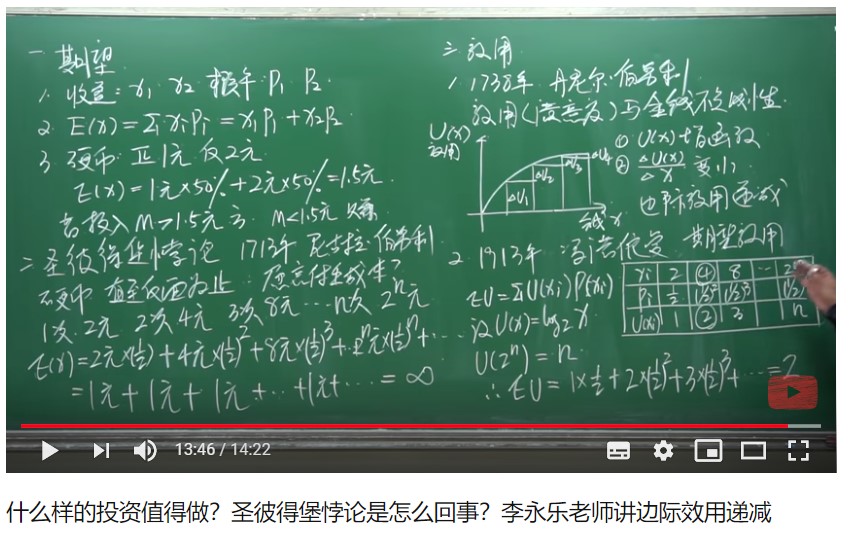 一 期望
1. 收益: x₁ x₂ 概率 P₁ P₂
2. E(x)=Σxᵢpᵢ=x₁p₁+x₂p₂
3. 硬币: 正1元 反2元
E(x)=1元×50%+2元×50%=1.5元
若投入M>1.5元亏 M<1.5元 赚
二 圣彼得堡悖论 1713年 尼古拉·伯努利
直至反面为止 愿意付多少成本?
1次 2元 2次 4元 3次 8元 … n次 2ⁿ元
E(x)=2元×(½)+4元×(½)²+8元×(½)³+…2ⁿ元×(½)ⁿ+…
=1元+1元+1元+…+1元+…=∞
三 效用
1. 1738年 丹尼尔·伯努利
效用(满意度)与金钱不成线性
U(x)
效用
ΔU₁ ΔU₂ ΔU₃ ΔU₄
金钱 x
① U(x)增函数
② ΔU(x)/Δx 变小
边际效用递减
2. 1913年 期望效用
EU=ΣU(xᵢ)P(xᵢ)
设U(x)=log₂x
U(2ⁿ)=n
xᵢ 2 ④ 8 …
Pᵢ ½ (½)² (½)³
U(xᵢ) 1 ② 3 n
∴EU=1×½+2×(½)²+3×(½)³+…=2
13:46 / 14:22
什么样的投资值得做？圣彼得堡悖论是怎么回事？李永乐老师讲边际效用递减